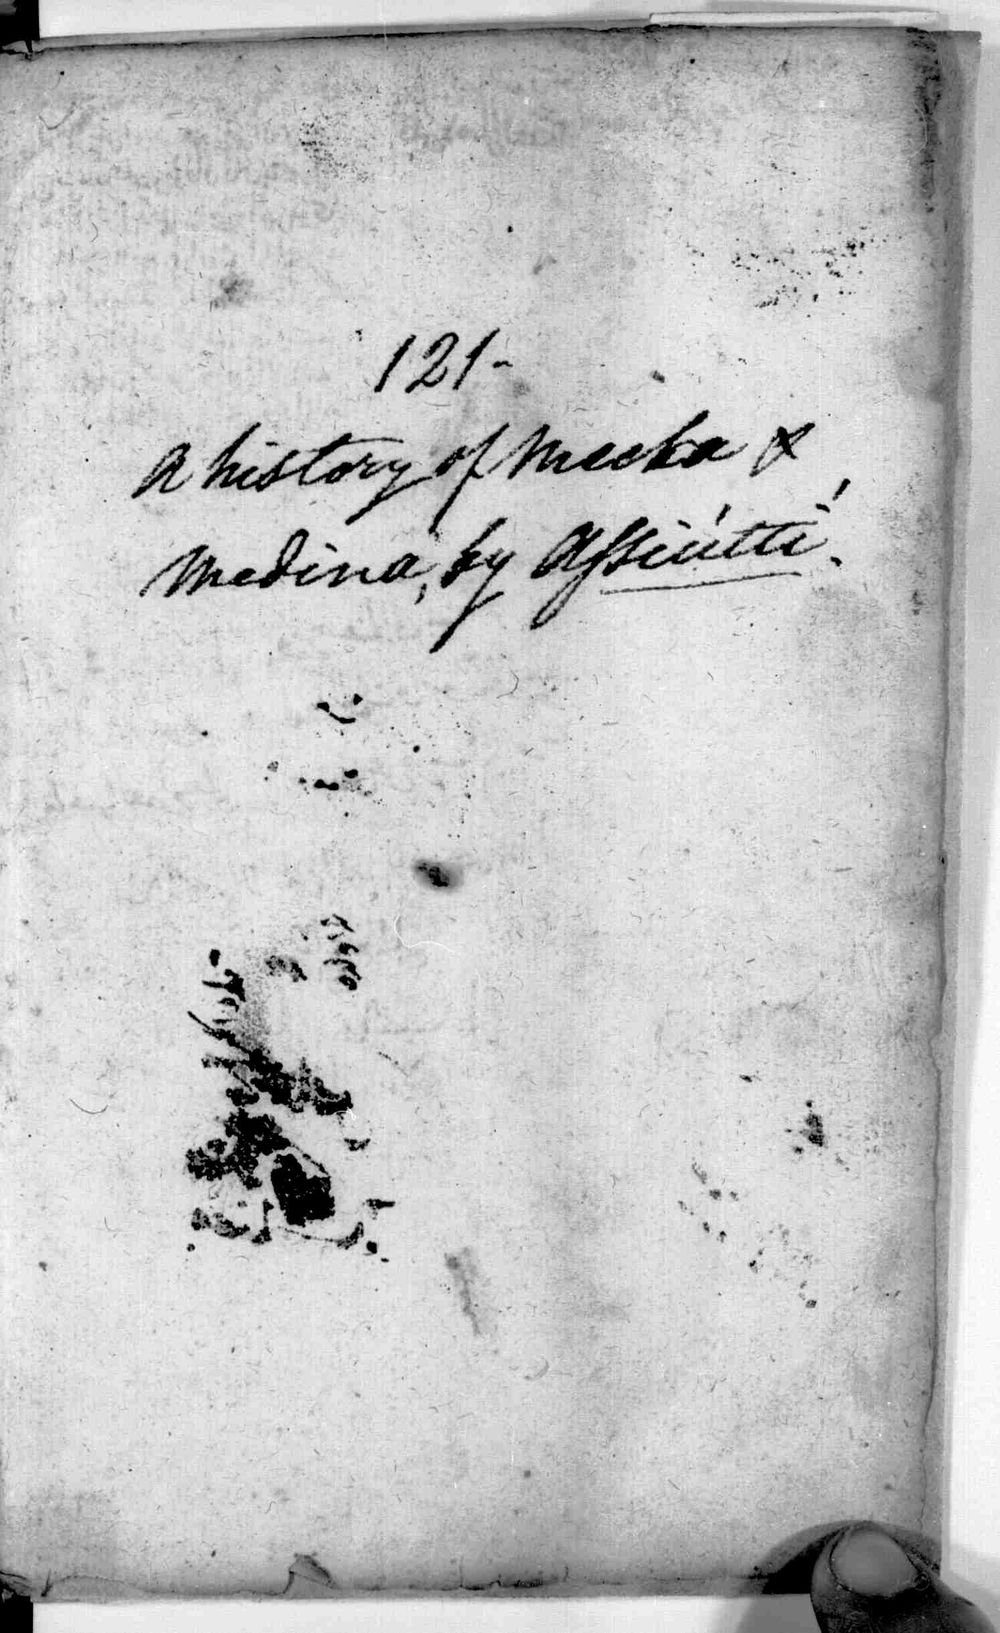 121-
A history of Mecka &
Medina, by Assiútti.